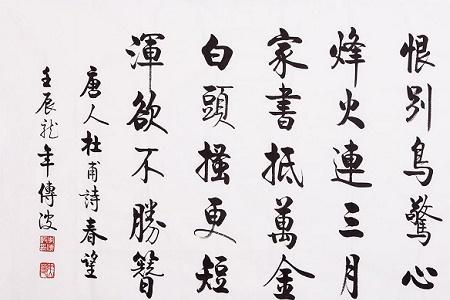 恨别鸟驚心
烽火連三月
家書抵萬金
白頭搔更短
渾欲不勝簪
唐人杜甫詩春望
壬辰龍年傳波